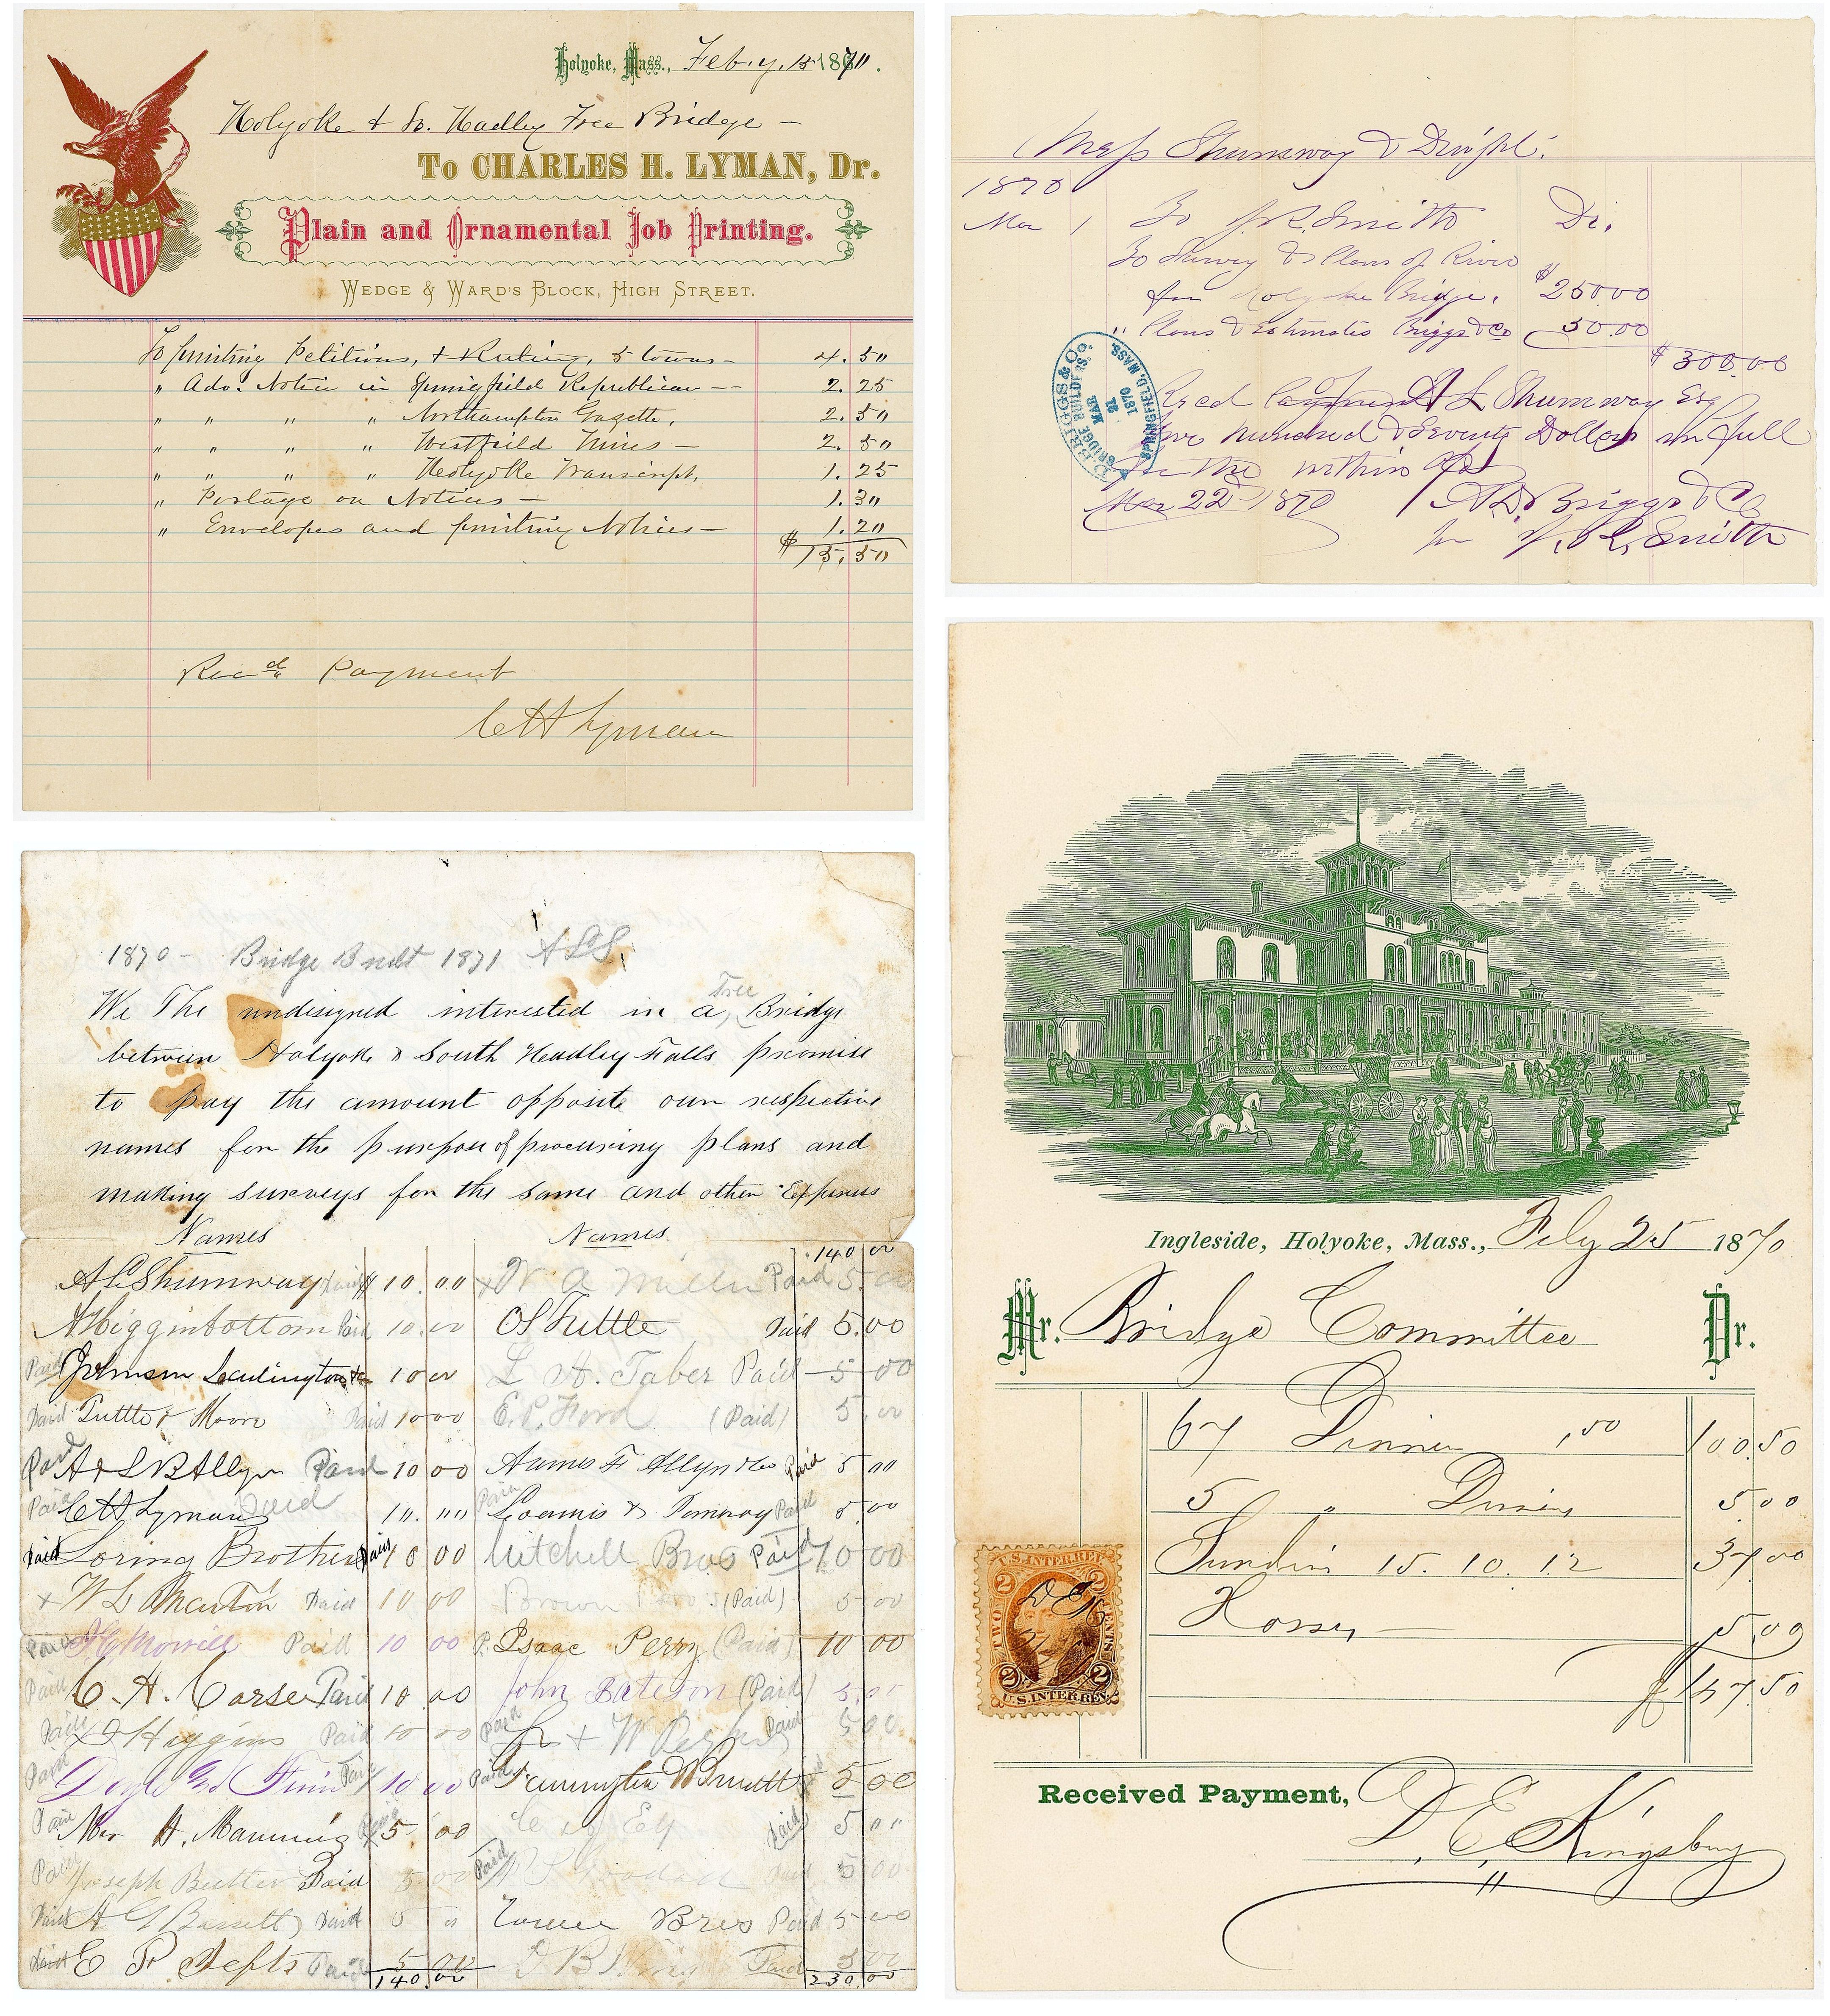 Holyoke, Mass., Feb.y. 15 1870.
Holyoke & So. Hadley Free Bridge —
To CHARLES H. LYMAN, Dr.
Plain and Ornamental Job Printing.
WEDGE & WARD'S BLOCK, HIGH STREET.
To printing Petitions, & Ruling, 5 towns — 4.50
" Adv. Notice in Springfield Republican — 2.25
" " " " Northampton Gazette, 2.50
" " " " Westfield Times — 2.50
" " " " Holyoke Transcript, 1.25
" Postage on Notices — 1.30
" Envelopes and printing Notices — 1.20
$15.50
Recd Payment
C H Lyman
Mess Shumway & Dwight.
1870
Mar 1 To Smith Dr.
To Survey & Plans of River
for Holyoke Bridge. $250.00
" Plans & Estimates Briggs & Co 50.00
$300.00
Recd Payment A L Shumway Esq
hundred & Seventy Dollars in full
for the within
Mar 22d 1870 A. D. Briggs & Co
for Smith
D. BRIGGS & CO.
BRIDGE BUILDERS.
MAR
21
1870
SPRINGFIELD, MASS.
1870 — Bridge Built 1871 ALS.
We The undisigned interested in a Free Bridge
between Holyoke & South Hadley Falls promise
to pay the amount opposite our respective
names for the purpose of procuring plans and
making surveys for the same and other Expenses
Names Names
140 00
A L Shumway Paid $10.00 W A Miller Paid 5.00
A Higginbottom Paid 10.00 O S Tuttle Paid 5.00
Paid Johnson 10 00 L H. Taber Paid 5 00
Paid Tuttle & Moore Paid 10 00 E. P. Ford (Paid) 5.00
Paid A & L B Allyn Paid 10 00 F Allyn & Co Paid 5 00
Paid C H Lyman Paid 10.00 Paid Loomis & Paid 5.00
Paid Loring Brothers Paid 10 00 Mitchell Bros Paid 10 00
x W L Martin Paid 10 00 Brown Bros (Paid) 5 00
Paid Morrill Paid 10 00 P. Isaac Perry (Paid) 10 00
Paid C. H. Paid 10 00 John Bateson (Paid) 5.00
Paid Higgins Paid 10 00 Paid & W Paid 5 00
Paid Doyle and Paid 10 00 Paid Farrington 5 00
Paid H. Manning 5.00 Ely Paid 5 00
Paid Joseph Paid 5 00 Paid Paid 5 00
Paid A G Bassett Paid 5 Turner Bros Paid 5 00
Paid E Paid 5 00 Paid 5 00
140.00 230.00
Ingleside, Holyoke, Mass., Feby 25 1870
Mr. Bridge Committee Dr.
67 Dinner 1.50 100.50
5 " 5.00
Sundries 15. 10. 12 37.00
Horses — 5.00
$147.50
U.S. INTER. REV.
TWO CENTS
2 2
2 2
U.S. INTER. REV.
Received Payment,
D. E. Kingsbury